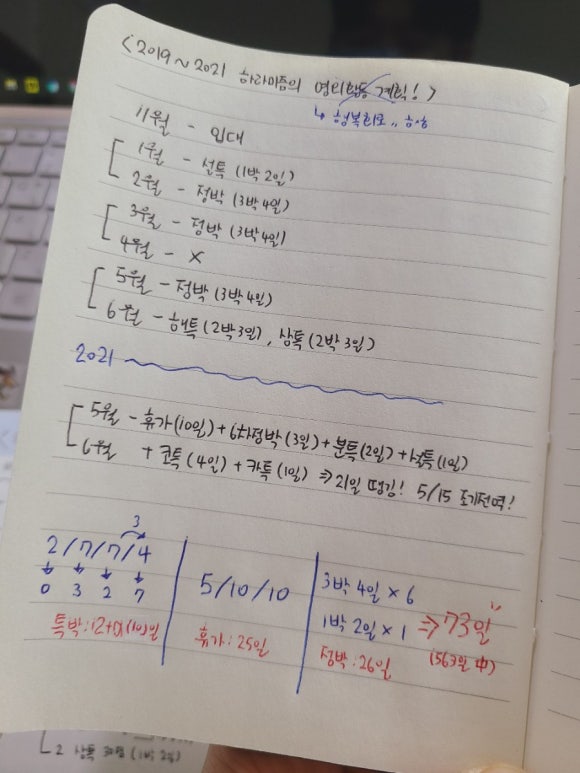 <2019~2021 하라미쯤의 영리합동 계획!>
↳ 행복회로.. 하하
11월 - 입대
1월 - 설특 (1박 2일)
2월 - 정박 (3박 4일)
3월 - 정박 (3박 4일)
4월 - X
5월 - 정박 (3박 4일)
6월 - 해특 (2박 3일), 상특 (2박 3일)
2021
5월 - 휴가 (10일) + 6차정박 (3일) + 분특 (2일) + 설특 (1일)
6월 + 코특 (4일) + 카특 (1일) ⇒ 21일 땡김! 5/15 조기전역!
3
2/7/7/4
0 3 2 7
특박:
5/10/10
휴가 : 25일
3박 4일 × 6
1박 2일 × 1 ⇒ 73일
정박 : 26일 (563일 中)
2 상특 (1박 2일)